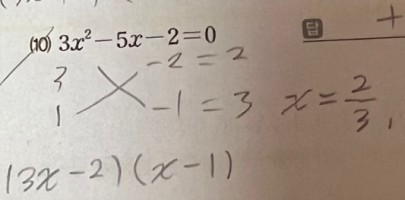 (10) 3x²-5x-2=0
답 +
3 -2 = 2
1 -1 = 3
x = 2/3,
(3x-2)(x-1)